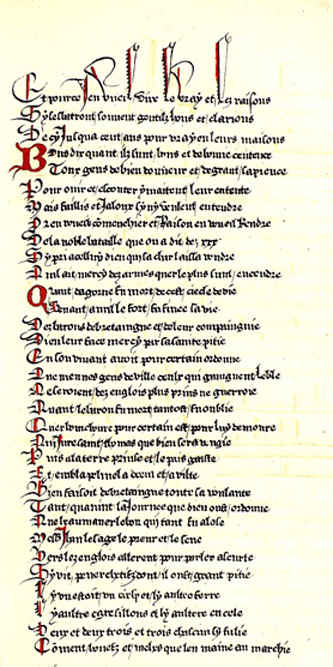 Et pource Jen vueil dire le vray et les raisons
Sy les batront souuent gentilz bons et clarions
De cy Jusqua cent ans pour vray en leurs maisons
Bons diz quant ilz sunt bons et de bonne sentence
Toux gens de bien doiuent et de grant sapience
Pour ouir et escouter y mettent leur entente
Mais faillis et Jaloux sy ny veulent entendre
Or en vueil comencher et Raison en vueil Rendre
De la noble bataille que on a dit des xxx
Sy pri a cellui dien qui sa char laissa vendre
Qui lait mercy des armes quer le plus sunt en cendre
Quant dagorne fu mort de cest ciecle de vie
Deuant auril le fort fu finee sa vie
Des barons de bretaingne et de leur compaingnie
Dien leur face mercy par sa sainte pitie
En son viuant auoit pour certain ordonne
Que menues gens de ville ceulx qui gaingnent le ble
Ne seroient des englois plus prins ne guerroie
Quant le baron fu mort tantost fu oublie
Quer bombourc pour certain est pour luy demoure
Qui Jure saint thomas que bien sera vengie
Puis a la terre prinse et le pais gaste
Et
Bien faisoit de bretaingne toute sa voulante
Tant quauint la Journee que dieu oust ordonne
Que beaumaner le bon qui tant fu alose
Mess Jehan le sage le preux et le sene
Vers les englois allerent pour parler a seurte
Sy vit pener chetifz dont il oust grant pitie
Ly vn estoit vn cirly et ly aultre ferre
Ly aultre es gresillons et ly aultre en cele
Deux et deux trois et trois chascun sy fu lie
Coment bouefz et que len maine au marchie